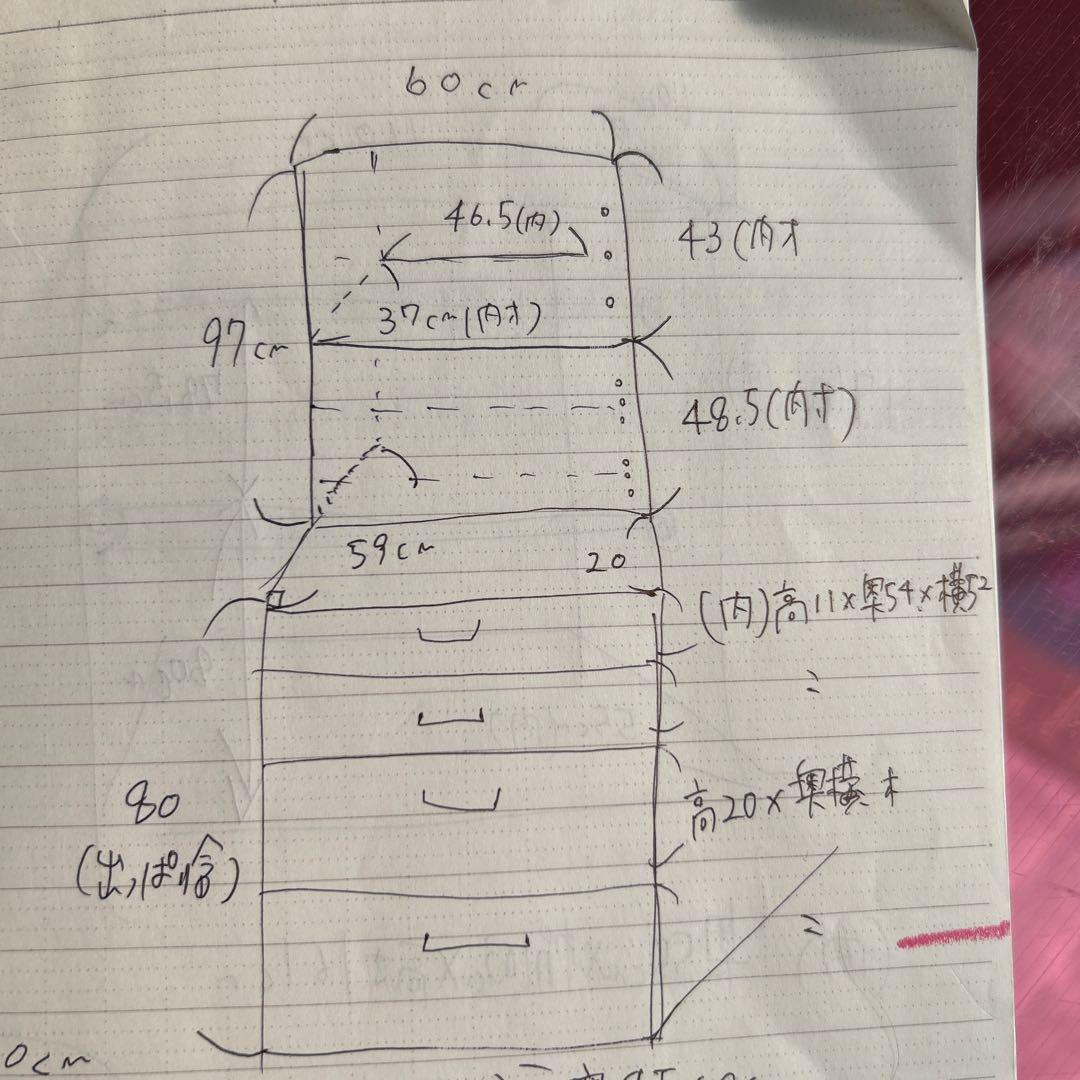 60cm
46.5(内)
43(内寸
37cm(内寸)
97cm
48.5(内寸)
59cm
20
(内)高11×奥54×横52
〃
80
高20×奥横
(出っぱ
〃
0cm